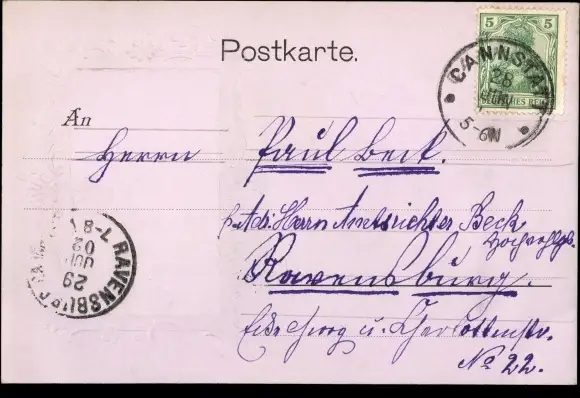 Postkarte.
5
DEUTSCHES REICH
CANNSTATT
28
JUN
5-6N
An
Herrn Paul Beck.
Adr: Herrn Amtsrichter Beck
Hochwohlgb.
Ravensburg.
Ecke Georg u. Charlottenstr.
No 22.
RAVENSBURG
29
JUN
02
7-8